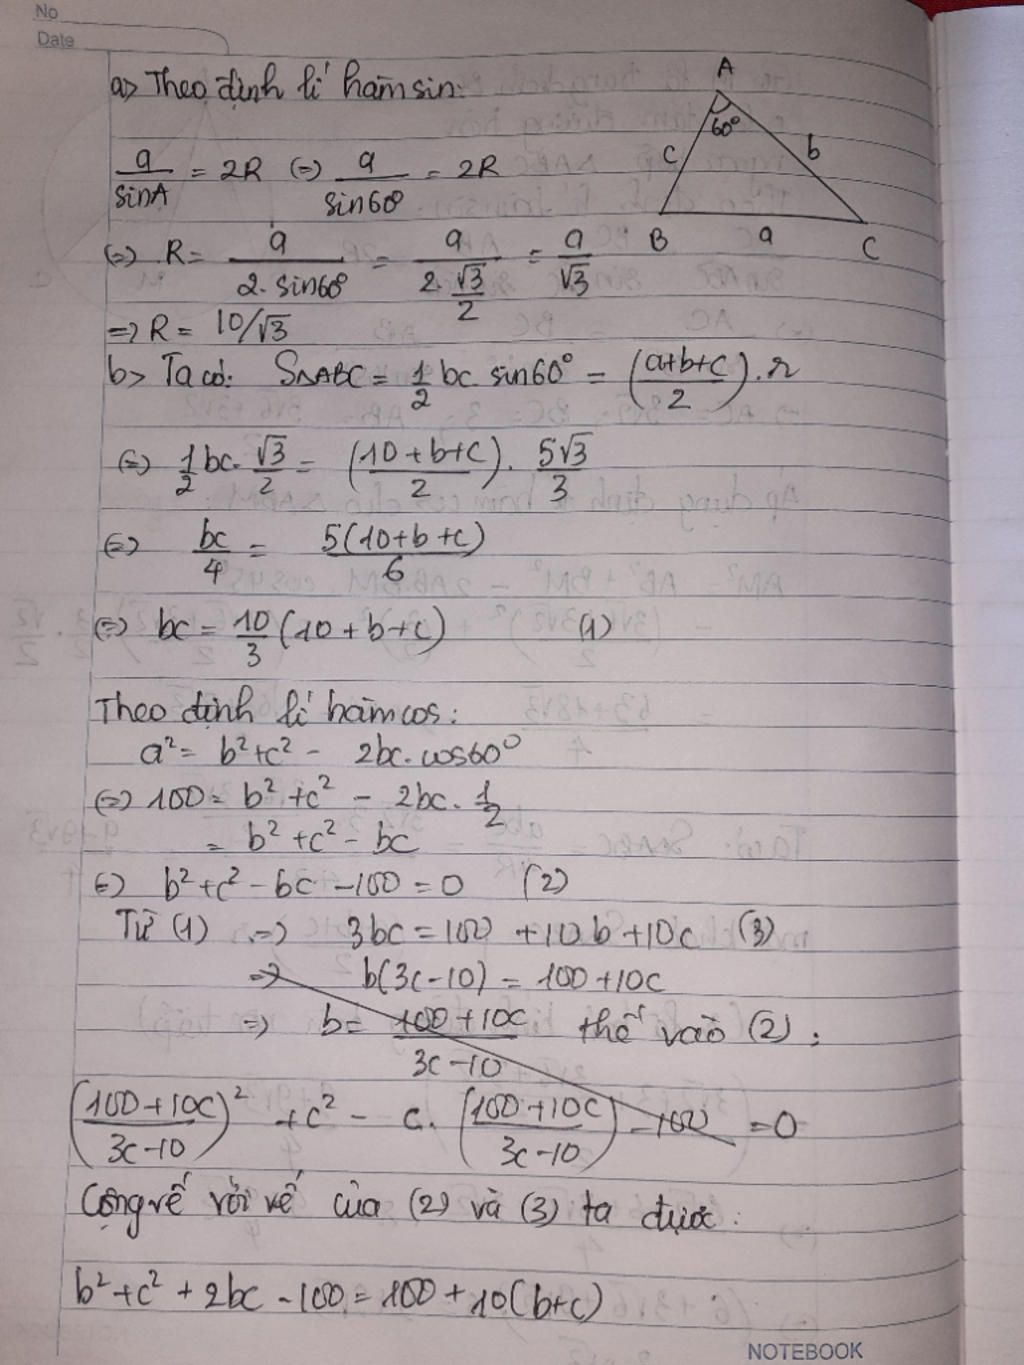 No
Date
a> Theo định lí hàm sin:
A
60°
c
b
B
a
C
a/sinA = 2R (=) a/sin60° = 2R
(=) R = a/(2.sin60°) = a/(2.√3/2) = a/√3
=> R = 10/√3
b> Ta có: SΔABC = 1/2 bc sin60° = ((a+b+c)/2).r
(=) 1/2 bc.√3/2 = ((10+b+c)/2).5√3/3
(=) bc/4 = 5(10+b+c)/6
(=) bc = 10/3(10+b+c) (1)
Theo định lí hàm cos:
a² = b²+c² - 2bc.cos60°
(=) 100 = b²+c² - 2bc.1/2
= b²+c²-bc
(=) b²+c²-bc-100 = 0 (2)
Từ (1) => 3bc = 100 + 10b + 10c (3)
=> b(3c-10) = 100+10c
=> b = (100+10c)/(3c-10) thế vào (2):
((100+10c)/(3c-10))² + c² - c.((100+10c)/(3c-10)) - 100 = 0
Cộng vế với vế của (2) và (3) ta được:
b²+c²+2bc-100 = 100+10(b+c)
NOTEBOOK